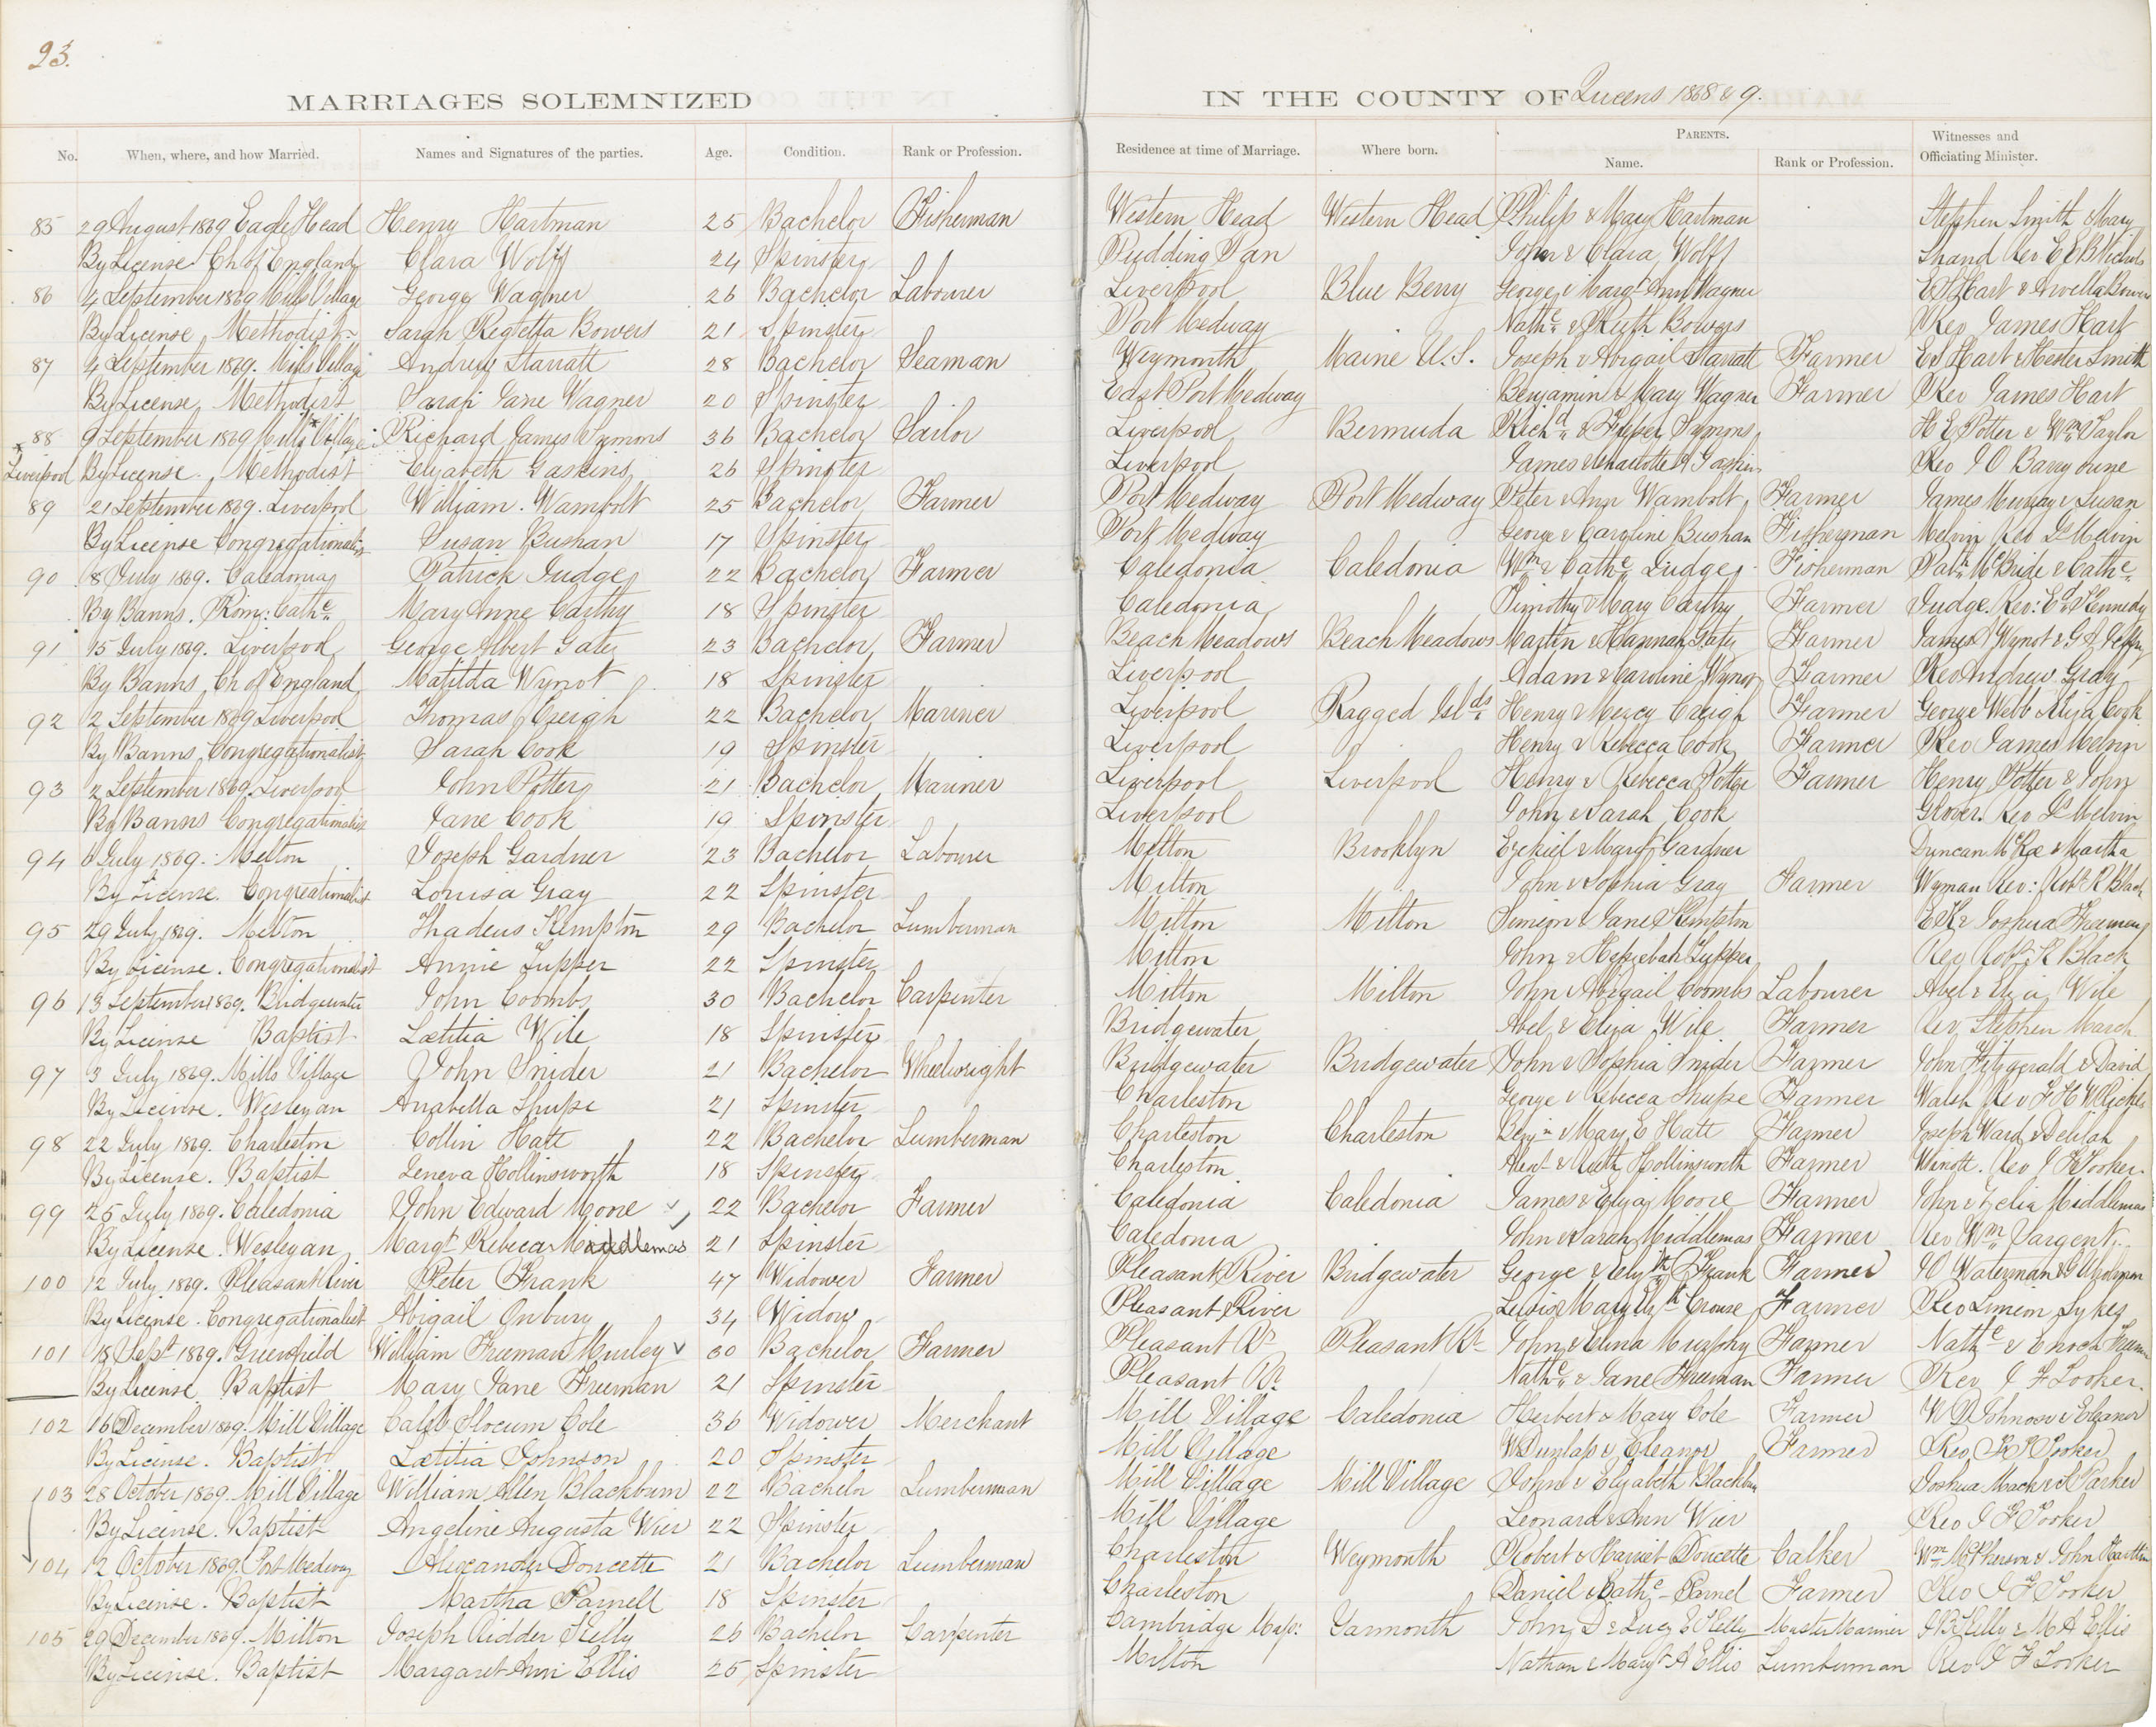 23.
MARRIAGES SOLEMNIZED IN THE COUNTY OF Queens 1868 & 9.
No. When, where, and how Married. Names and Signatures of the parties. Age. Condition. Rank or Profession. Residence at time of Marriage. Where born. PARENTS. Name. Rank or Profession. Witnesses and Officiating Minister.
85 29 August 1869 Eagle Head Henry Hartman 25 Bachelor Fisherman Western Head Western Head Philip & Mary Hartman Stephen Smith & Mary
By License Ch of England Clara Wolff 24 Spinster Pudding Pan John & Clara Wolff Rev E E B Nichols
86 4 September 1869 Mills Village George Wagner 26 Bachelor Labourer Liverpool Blue Berry George & Margt Ann Wagner Hart & Bowers
By License Methodist Sarah Regetta Bowers 21 Spinster Port Medway Nathl & Ruth Bowers Rev James Hart
87 4 September 1869. Mills Village Andrew Starratt 28 Bachelor Seaman Weymouth Maine U.S. Joseph & Abigail Starratt Farmer Hart & Hester Smith
By License Methodist Sarah Jane Wagner 20 Spinster East Port Medway Benjamin & Mary Wagner Farmer Rev James Hart
88 9 September 1869 Mills Village Richard James Symons 36 Bachelor Sailor Liverpool Bermuda Richd & Symons H E Potter & Wm Taylor
* Liverpool By License. Methodist Elizabeth Gaskins 26 Spinster Liverpool James & Charlotte A Gaskins Rev
89 21 September 1869. Liverpool William. Wambolt 25 Bachelor Farmer Port Medway Port Medway Peter & Ann Wambolt Farmer James Murray & Susan
By License Congregationalist Susan Bushan 17 Spinster Port Medway George & Caroline Bushan Fisherman Melvin Rev Melvin
90 8 July 1869. Caledonia Patrick Judge 22 Bachelor Farmer Caledonia Caledonia Wm & Cathe Judge Fisherman Patk McBride & Cathe
By Banns. Rom: Cathc Mary Anne Carthy 18 Spinster Caledonia Timothy & Mary Carthy Farmer Judge. Rev: Ed Kennedy
91 15 July 1869. Liverpool George Albert Gates 23 Bachelor Farmer Beach Meadows Beach Meadows Martin & Hannah Farmer James Wynot &
By Banns Ch of England Matilda Wynot 18 Spinster Liverpool Adam & Caroline Wynot Farmer Rev Andrew Gray
92 2 September 1869 Liverpool Thomas Creigh 22 Bachelor Mariner Liverpool Ragged Islds Henry & Mercy Creigh Farmer George Webb Eliza Cook
By Banns Congregationalist Sarah Cook 19 Spinster Liverpool Henry & Rebecca Cook Farmer Rev James Melvin
93 2 September 1869. Liverpool John Potter 21 Bachelor Mariner Liverpool Liverpool Henry & Rebecca Potter Farmer Henry Potter & John
By Banns Congregationalist Jane Cook 19 Spinster Liverpool John & Sarah Cook Grover. Rev Melvin
94 6 July 1869. Milton Joseph Gardner 23 Bachelor Labourer Milton Brooklyn Ezekiel & Mary Gardner Duncan McRae & Martha
By License. Congreationalist Louisa Gray 22 Spinster Milton John & Sophia Gray Farmer Wyman Rev: Robt K Black
95 29 July 1869. Milton Thadeus Kempton 29 Bachelor Lumberman Milton Milton Simeon & Jane Kempton & Joshua Freeman
By License. Congregationalist Annie Tupper 22 Spinster Milton John & Hepzebah Tupper Rev Robt K Black
96 13 September 1869. Bridgewater John Coombs 30 Bachelor Carpenter Milton Milton John & Abigail Coombs Labourer Abel & Eliza Wile
By License Baptist Lætitia Wile 18 Spinster Bridgewater Abel & Eliza Wile Farmer Rev. Stephen March
97 3 July 1869. Mills Village John Snider 21 Bachelor Wheelwright Bridgewater Bridgewater John & Sophia Snider Farmer John Fitzgerald & David
By License. Wesleyan Anabella Shupe 21 Spinster Charleston George & Rebecca Shupe Farmer Walsh Rev F H W Pickles
98 22 July 1869. Charleston Collin Hatt 22 Bachelor Lumberman Charleston Charleston Benjn & Mary E Hatt Farmer Joseph Ward & Delilah
By License. Baptist Geneva Hollinsworth 18 Spinster Charleston & Ruth Hollinsworth Farmer Winott. Rev I F Tooker.
99 25 July 1869. Caledonia John Edward Moore 22 Bachelor Farmer Caledonia Caledonia James & Eliza Moore Farmer John & Middlemas
By License. Wesleyan Margt Rebeca Middlemas 21 Spinster Caledonia John & Sarah Middlemas Farmer Rev Wm Sargent.
100 12 July 1869. Pleasant River Peter Frank 47 Widower Farmer Pleasant River Bridgewater George & Elizth Frank Farmer Waterman &
By License. Congregationalist Abigail 34 Widow Pleasant River & Mary Elizth Crouse Farmer Rev Simeon Sykes
101 18 Sept 1869. Greenfield William Freeman Murley 30 Bachelor Farmer Pleasant Rr Pleasant Rr John & Murphy Farmer Nathl & Enoch Freeman
By License Baptist Mary Jane Freeman 21 Spinster Pleasant Rr Nathl & Jane Freeman Farmer Rev I F Tooker.
102 16 December 1869. Mill Village Caleb Slocum Cole 36 Widower Merchant Mill Village Caledonia Herbert & Mary Cole Farmer W D Johnson & Eleanor
By License. Baptist Lætitia Johnson 20 Spinster Mill Village W Dunlap & Eleanor Farmer Rev Tooker
103 28 October 1869. Mill Village William Allen Blackburn 22 Bachelor Lumberman Mill Village Mill Village John & Elizabeth Blackburn Joshua Mack & Parker
By License. Baptist Angeline Augusta Wier 22 Spinster Mill Village Leonard & Ann Wier Rev I F Tooker
104 12 October 1869. Port Medway Alexander Doucette 21 Bachelor Lumberman Charleston Weymouth Robert & Harriet Doucette Calker Wm McPherson & John
By License. Baptist Martha Parnell 18 Spinster Charleston Daniel & Cathe Parnel Farmer Rev I F Tooker
105 29 December 1869. Milton Joseph Ridder Kelly 26 Bachelor Carpenter Cambridge Mass: Yarmouth John D & Lucy E Kelly Master Mariner Kelly & M A Ellis
By License. Baptist Margaret Ann Ellis 25 Spinster Milton Nathan & Margt A Ellis Lumberman Rev I F Tooker